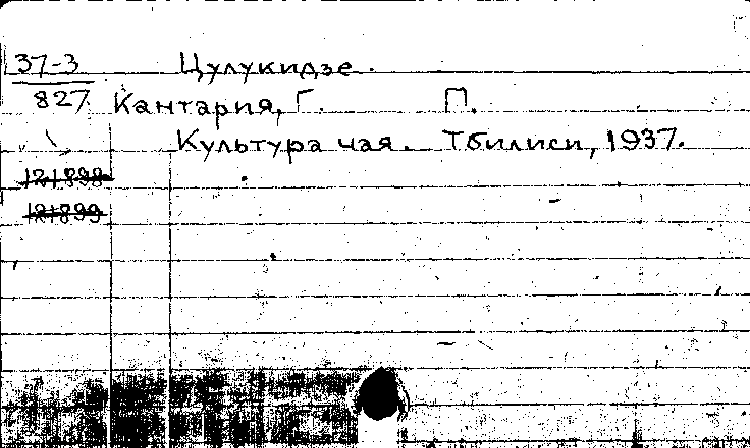 37-3 Цулукидзе.
827 Кантария, Г. П.
Культура чая. Тбилиси, 1937.
121898
121899